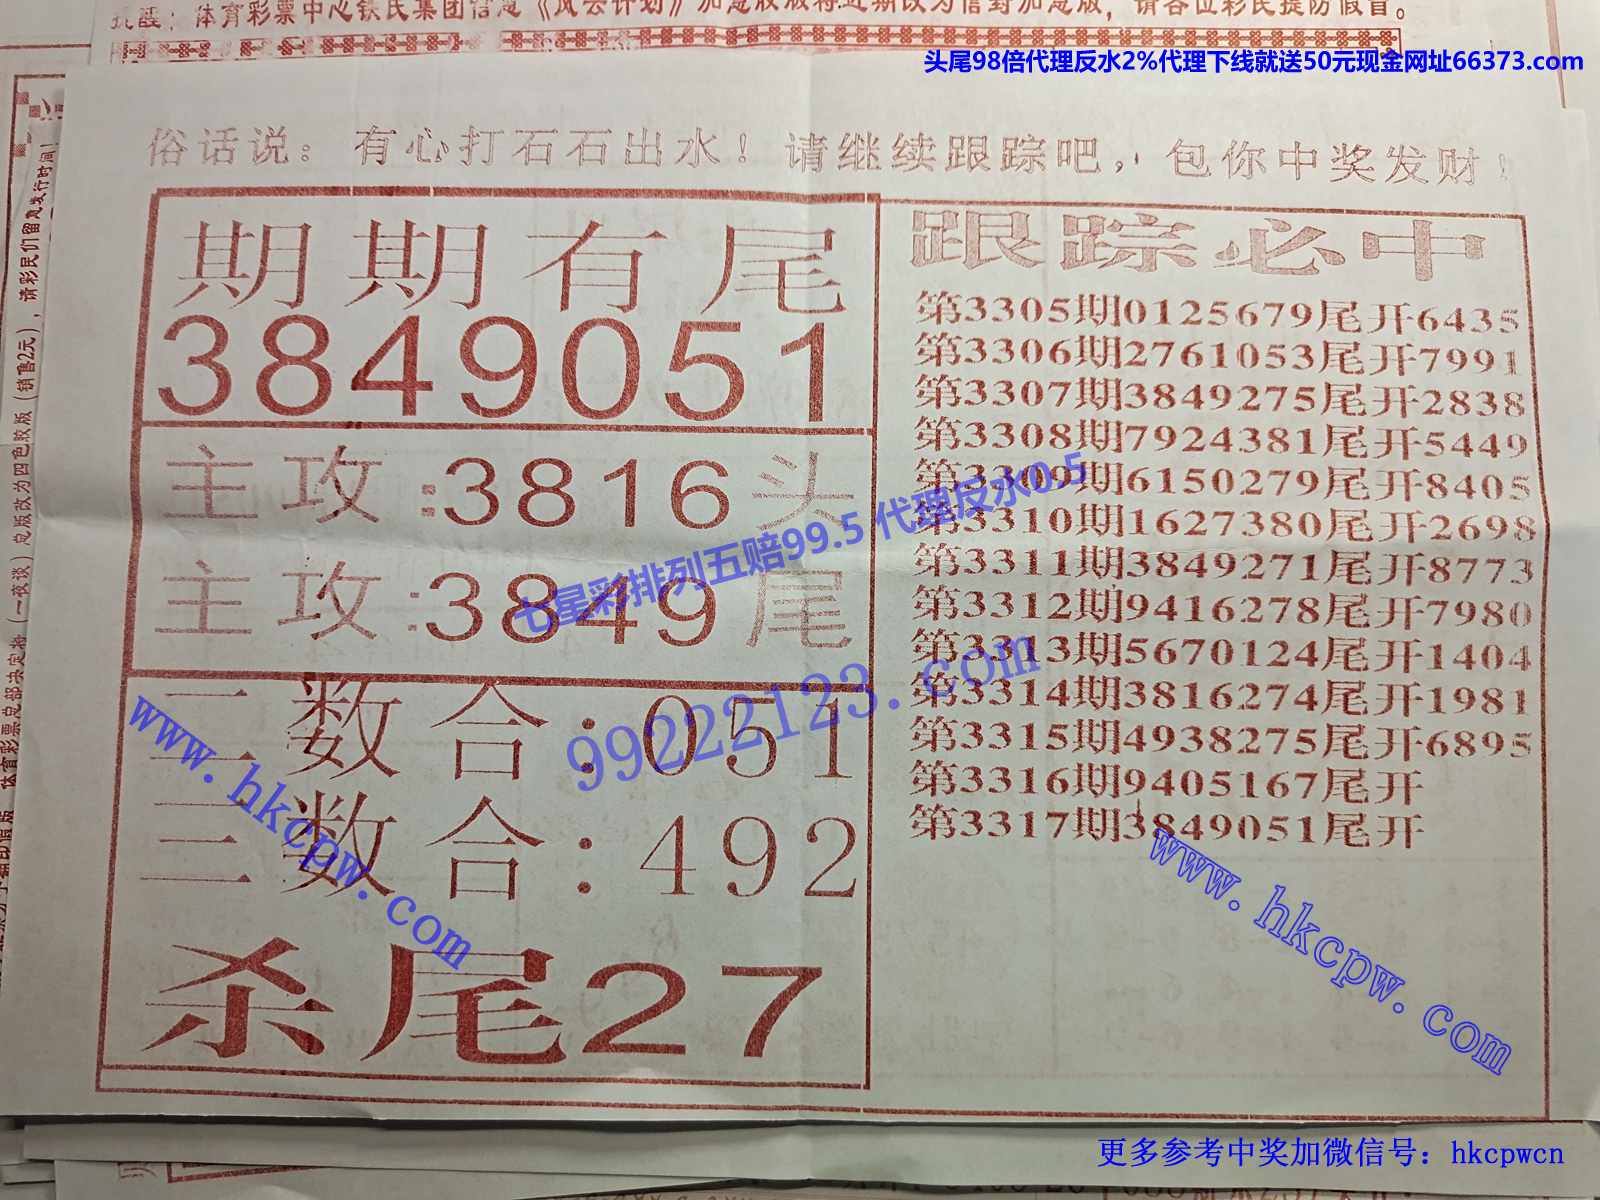 提醒：体育彩票中心铁民集团信息《风云计划》加急胶版将近期改为信封加急版，请各位彩民提防假冒。
头尾98倍代理反水2%代理下线就送50元现金网址66373.com
俗话说：有心打石石出水！请继续跟踪吧，包你中奖发财！
期期有尾
3849051
主攻:3816头
主攻:3849尾
二数合:051
三数合:492
杀尾27
跟踪必中
第3305期0125679尾开6435
第3306期2761053尾开7991
第3307期3849275尾开2838
第3308期7924381尾开5449
第3309期6150279尾开8405
第3310期1627380尾开2698
第3311期3849271尾开8773
第3312期9416278尾开7980
第3313期5670124尾开1404
第3314期3816274尾开1981
第3315期4938275尾开6895
第3316期9405167尾开
第3317期3849051尾开
七星彩排列五赔99.5 代理反水0.5
99222123.com
www.hkcpw.com
www.hkcpw.com
体育彩票总部决定将（一夜谈）总版改为四色胶版（销售2元），请彩民们留意发行时间！
更多参考中奖加微信号：hkcpwcn